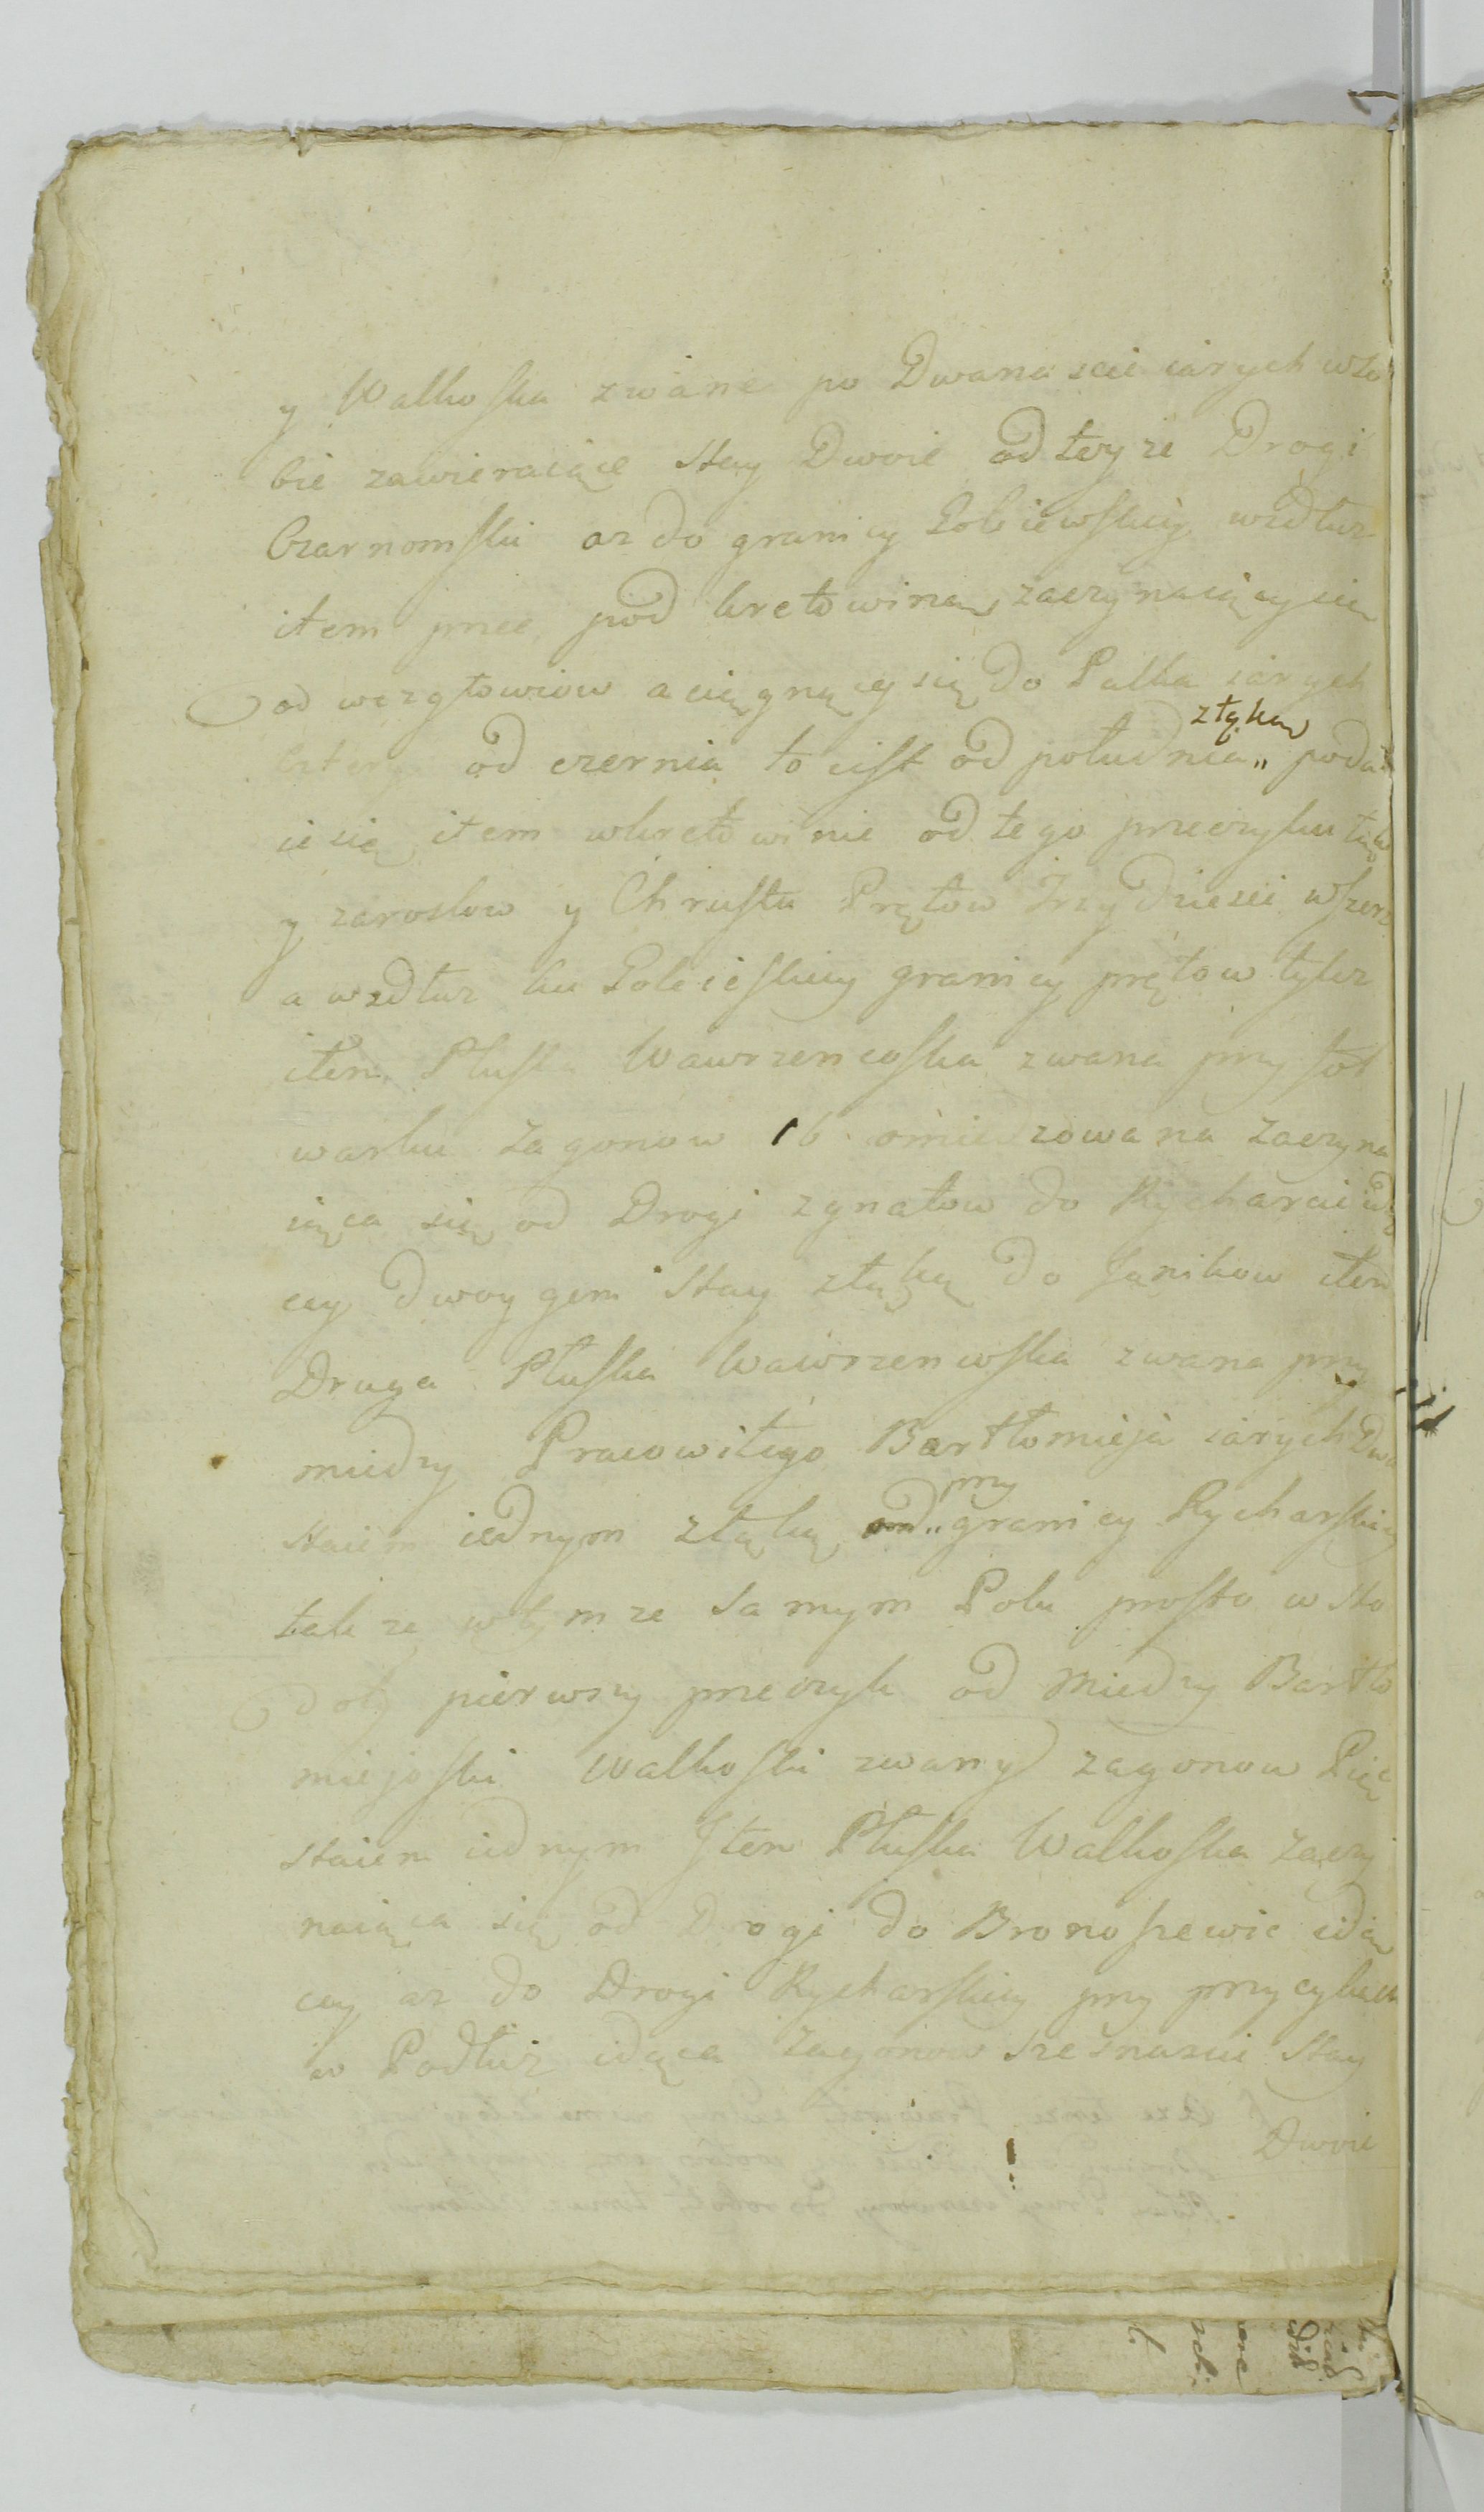 y Walkoska zwane po Dwanascie iarych wso
bie zawieraiące stay Dwoie od teyze Drogi
Czarnomski az do granicy Golciewskiey wzdłuz
item pnee pod kretowinaw zaczynaiący się
od wezgłowiow aciągnący się do Palka iarych
cztery od czernia to iest od południa„ złąkaw poda
ie się item wkretowinie od tego przeczyku
y zaroslow y Chrustu Prętow Trzydziesci wszerz
a wzdłuz ku Golcieskiey granicy prętow tylez
item Pluska Wawrzencoska zwana przy fol
warku Zagonow 16 omiedzowana Zaczyna
iąca się od Drogi zgnatow do Rycharcic idą
cey dwoygem stay złąką do Janikow item
Druga Płuska Wawrzencoska zwana przy
miedzy Pracowitego Bartłomieja iarych Dwa
staiem iednym złąką „przy granicy Rycharskiey
takze wtymze samym Polu prosto wsto
doły pierwszy przeczyk od miedzy Bartło
miejoski Walkoski zwany zagonow Pięć
staiem iednym Item Płuska Walkoska Zaczy
naiąca się od Drogi do Bronoszewic idą
cey az do Drogi Rycharskiey przy przyczykach
w Podłuż idąca Zagonow szesnascie stay
Dwoie